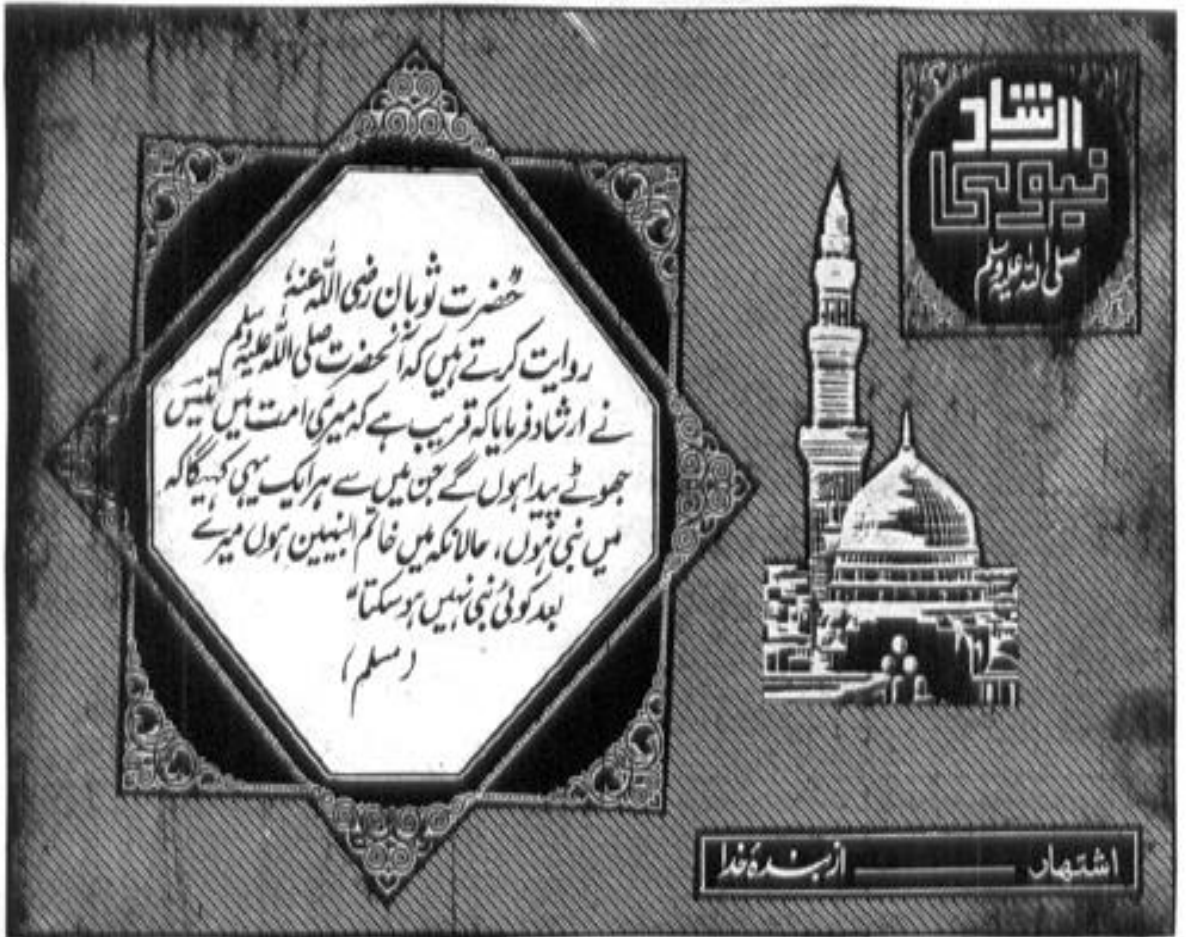 ارشاد
نبوی
صلی اللہ علیہ وسلم
حضرت ثوبان رضی اللہ عنہٗ
روایت کرتے ہیں کہ آنحضرت صلی اللہ علیہ وسلم
نے ارشاد فرمایا کہ قریب ہے کہ میری امت میں تیس
جھوٹے پیدا ہوں گے جن میں سے ہر ایک یہی کہیگا کہ
میں نبی ہوں، حالانکہ میں خاتم النبیین ہوں میرے
بعد کوئی نبی نہیں ہوسکتا"
(مسلم)
اشتہار ــــــــ از بندۂ خدا